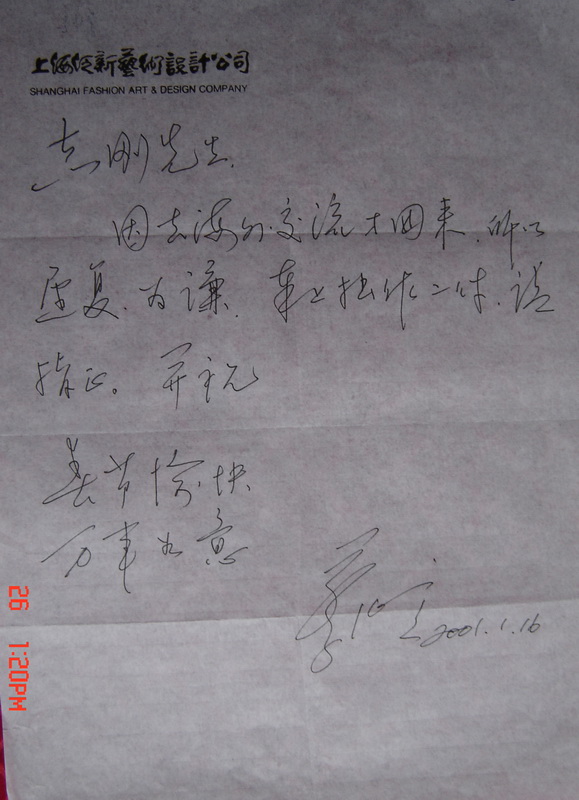 上海泛新藝術設計公司
SHANGHAI FASHION ART & DESIGN COMPANY
志刚先生.
因去海外交流才回来.所以
迟复.为谦.奉上拙作二件.请
指正。并祝
春节愉快
万事如意
2001.1.16
26 1:20PM